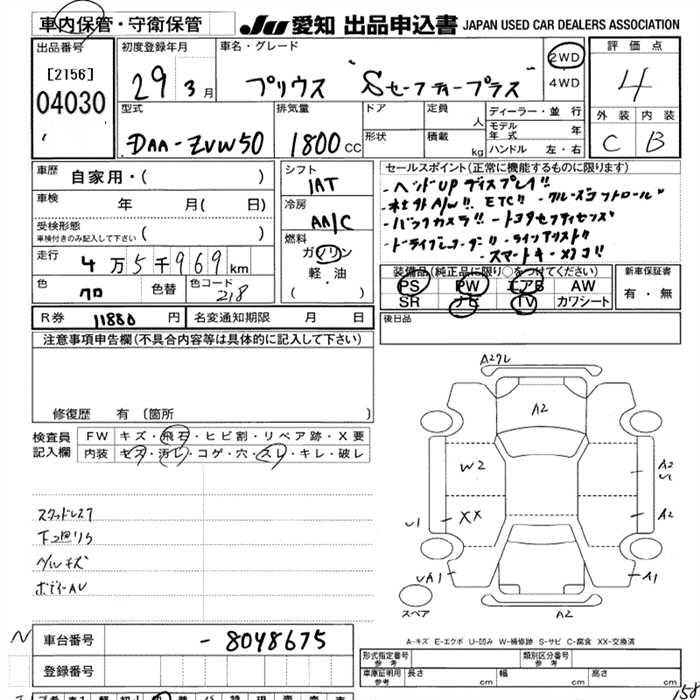 車内保管・守衛保管
JU 愛知 出品申込書 JAPAN USED CAR DEALERS ASSOCIATION
出品番号
[2156]
04030
初度登録年月
29 3月
車名・グレード
プリウス "Sセーフティープラス"
2WD
4WD
評価点
4
外装 内装
C B
型式
DAA-ZVW50
排気量
1800 CC
ドア
形状
定員
人
積載
kg
ディーラー・並行
モデル年式 年
ハンドル 左・右
車歴
自家用・( )
車検
年 月( 日)
受検形態
車検付きのみ記入して下さい ( )
走行
4万5千969km
色
クロ
色替
色コード
218
シフト
IAT
冷房
AA/C
燃料
ガソリン
軽・油
( )
セールスポイント(正常に機能するものに限ります)
・ヘッドUPディスプレイ!!
・社外A/W!! ETC!! ・クルーズコントロール"
・バックカメラ!! ・トヨタセフティセンス"
・ドライブレコーダー!! ・ラインアシスト!!
・スマートキー・×1コ!!
装備品(純正品に限り○をつけてください)
PS PW エアB AW
SR ナビ TV カワシート
新車保証書
有・無
R券 11880 円
名変通知期限 月 日
後日品
注意事項申告欄(不具合内容等は具体的に記入して下さい)
修復歴 有 〔箇所 〕
検査員記入欄
FW キズ・飛石・ヒビ割・リペア跡・X要
内装 キズ・汚レ・コゲ・穴・スレ・キレ・破レ
スタッドレス7
下廻りサ
グリルキズ
ボディーAU
A2クレ
A2
W2
XX
U1
UA1
A2
U1
A2
A1
A2
スペア
A-キズ E-エクボ U-凹み W-補修跡 S-サビ C-腐食 XX-交換済
N
車台番号
-8048675
登録番号
形式指定番号 参考
類別区分番号 参考
車庫証明用 参考
長さ
幅
高さ
cm